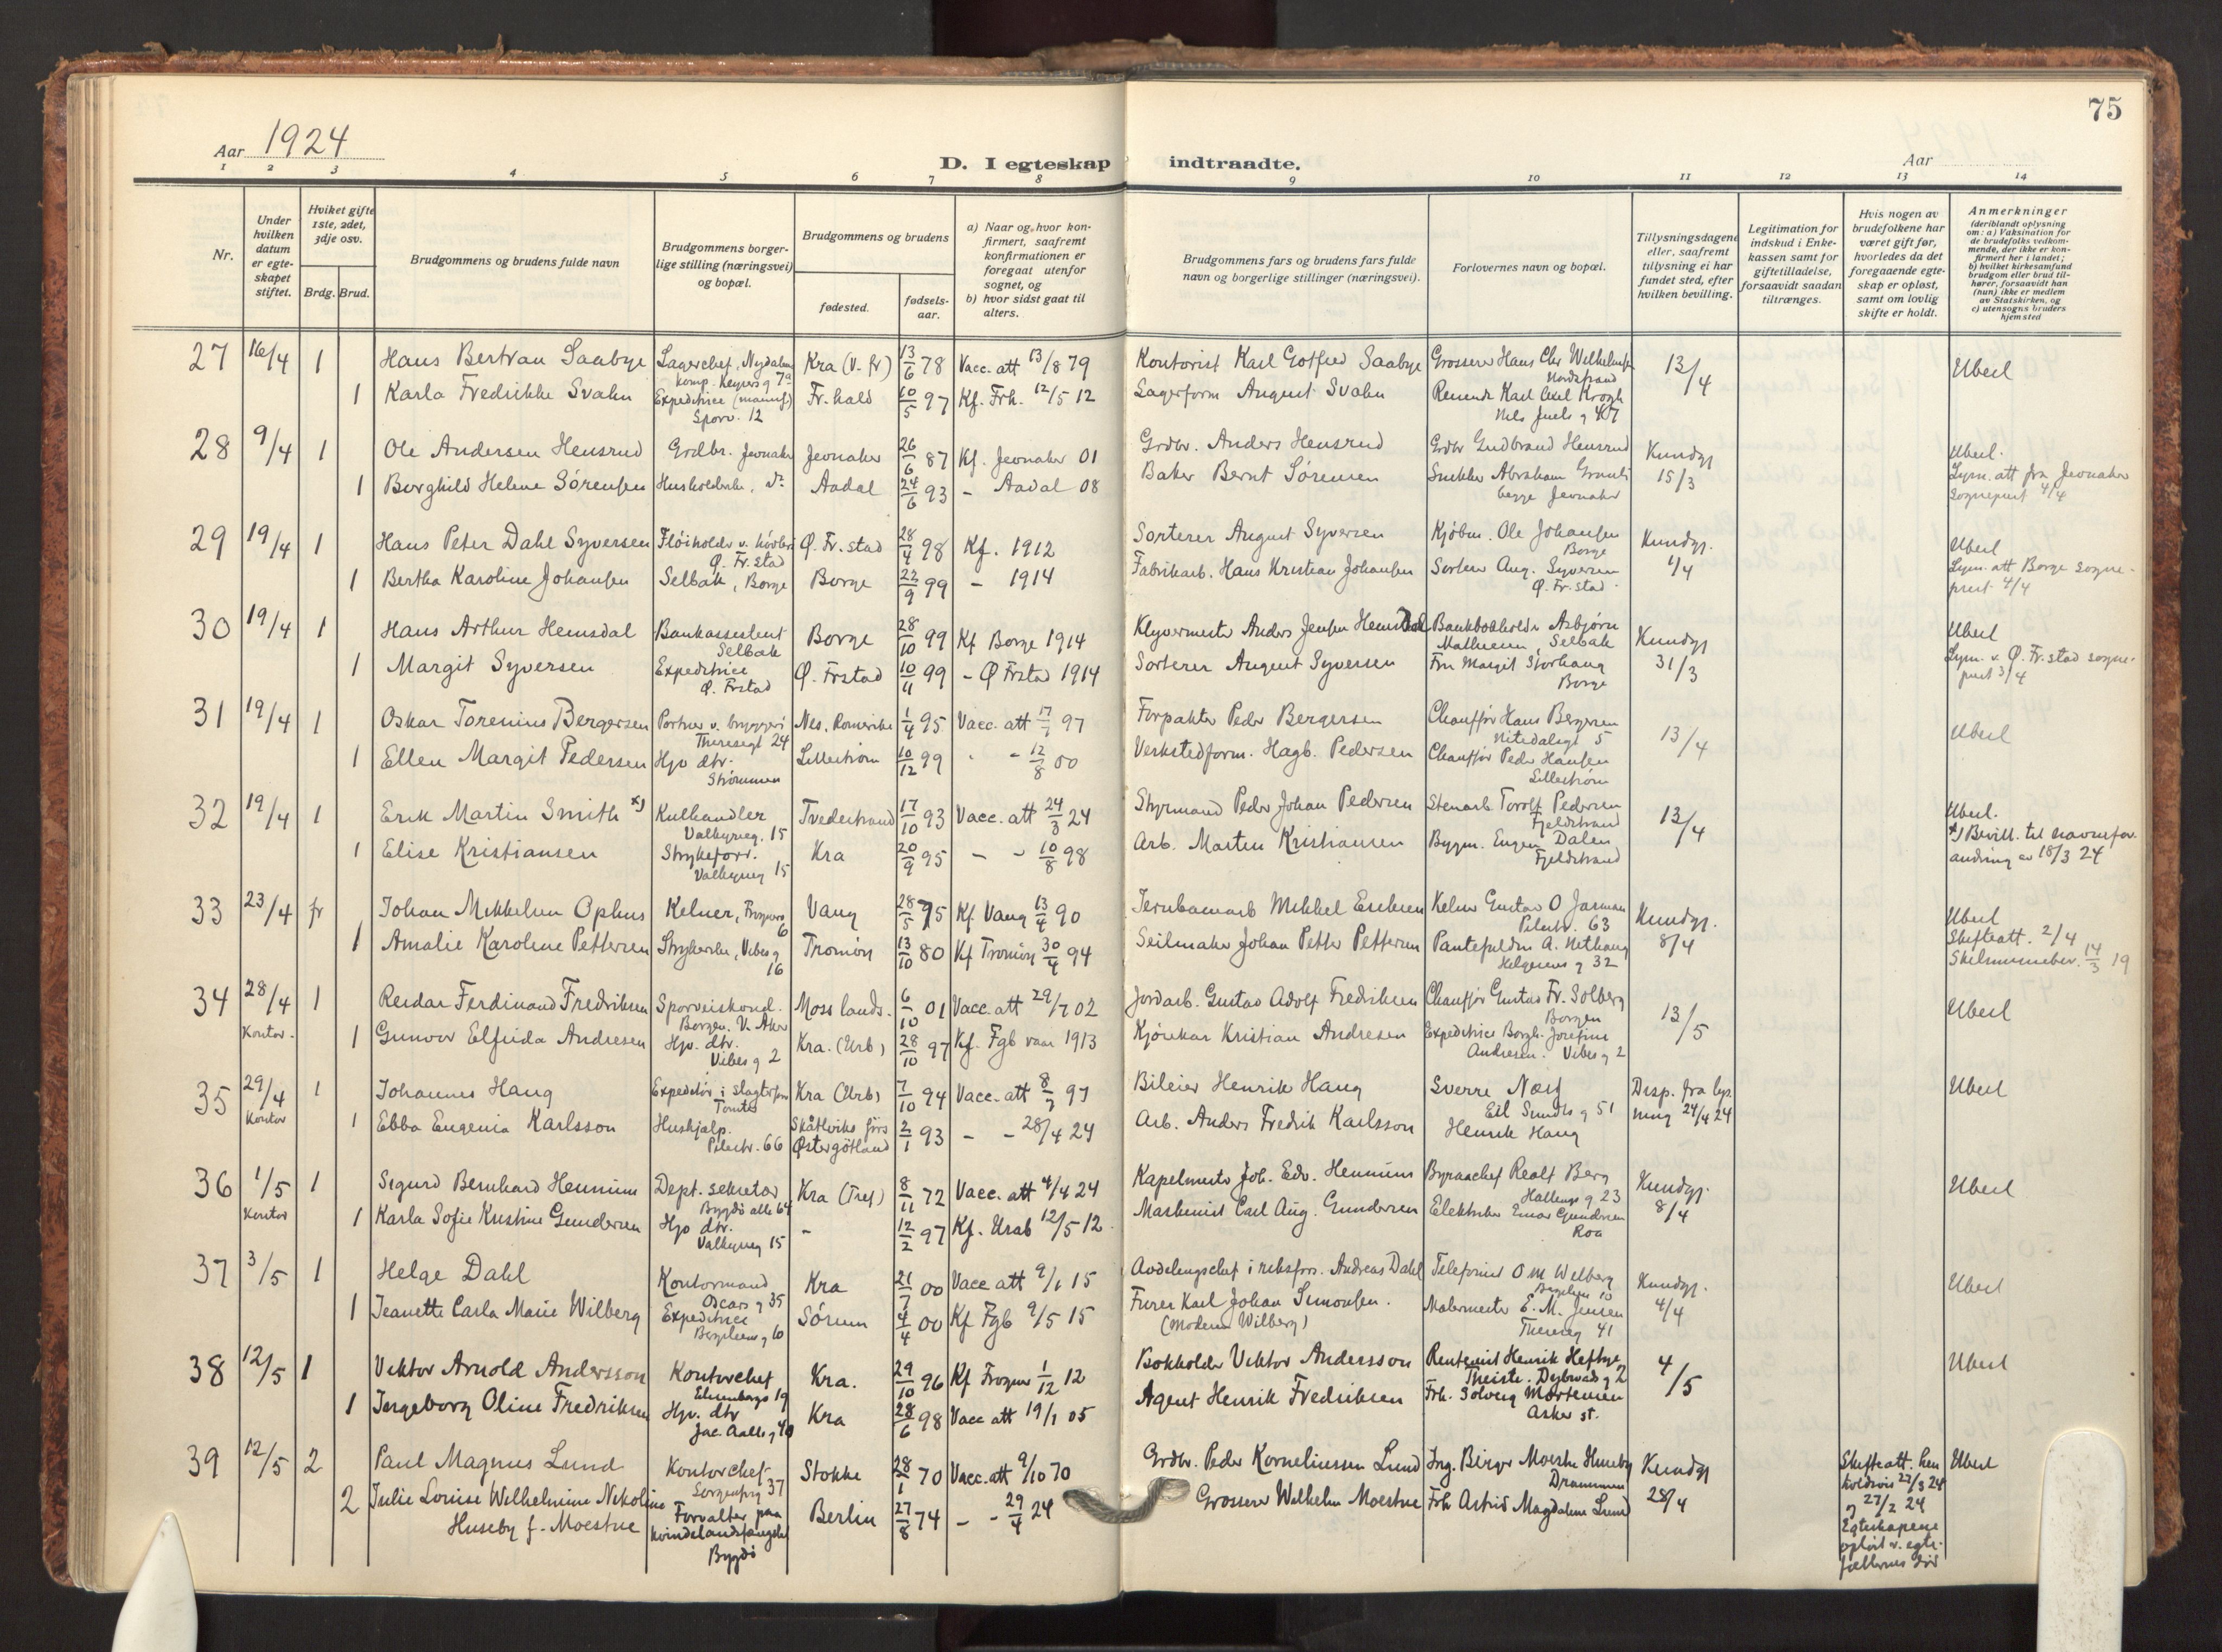 75
Aar 1924
D. I egteskap indtraadte.
Aar
1 2 3 4 5 6 7 8 9 10 11 12 13 14
Nr.
Under hvilken datum er egteskapet stiftet.
Hvilket gifte 1ste, 2det, 3dje osv.
Brdg. Brud.
Brudgommens og brudens fulde navn
Brudgommens borgerlige stilling (næringsvei) og bopæl.
Brudgommens og brudens
fødested.
fødselsaar.
a) Naar og hvor konfirmert, saafremt konfirmationen er foregaat utenfor sognet, og
b) hvor sidst gaat til alters.
Brudgommens fars og brudens fars fulde navn og borgerlige stillinger (næringsvei).
Forlovernes navn og bopæl.
Tillysningsdagene eller, saafremt tillysning ei har fundet sted, efter hvilken bevilling.
Legitimation for indskud i Enkekassen samt for giftetilladelse, forsaavidt saadan tiltrænges.
Hvis nogen av brudefolkene har været gift før, hvorledes da det foregaaende egteskap er opløst, samt om lovlig skifte er holdt.
Anmerkninger (deriblandt oplysning om: a) Vaksination for de brudefolks vedkommende, der ikke er konfirmert her i landet; b) hvilket kirkesamfund brudgom eller brud tilhører, forsaavidt han (hun) ikke er medlem av Statskirken, og c) utensogns bruders hjemsted
27 16/4 1 Hans Bertran Saabye Lagerchef, Nydalens komp. Keysers g 7a Kra (V. fr) 13/6 78 Vacc. att 13/8 79 Kontorist Karl Gotfred Saabye Grosserer Hans Chr Wilhelmsen Nordstrand 13/4 Ubesl
1 Karla Fredrikke Svahn Expeditrice (manuf.) Sporv. 12 Fr.hald 10/5 97 Kf. Frh. 12/5 12 Lagerform August Svahn Karl Axel Krogh Nils Juels g 47
28 9/4 1 Ole Andersen Hensrud Grdbr. Jevnaker Jevnaker 26/6 87 Kf. Jevnaker 01 Grdbr. Anders Hensrud Grdbr Gudbrand Hensrud Kundgj 15/3 Ubesl.
1 Borghild Helene Sørensen Husholderske, do Aadal 24/6 93 - Aadal 08 Baker Bernt Sørensen Snekker Abraham begge Jevnaker Lysn. att fra Jevnaker sogneprest 4/4
29 19/4 1 Hans Peter Dahl Syversen Ø. Fr.stad Ø. Fr.stad 28/4 98 Kf. 1912 Sorterer August Syversen Kjøbm. Ole Johansen Borge Kundgj. 1/4 Ubesl
1 Bertha Karoline Johansen Selbak, Borge Borge 22/9 99 - 1914 Fabrikarb. Hans Kristian Johansen Sorterer Aug. Syversen Ø. Fr.stad. Lysn. att Borge sogneprest 4/4
30 19/4 1 Hans Arthur Hemsdal Bankassistent Selbak Borge 28/10 99 Kf Borge 1914 Klyvermester Anders Jensen Hemsdal Bankbokholder Asbjørn Mathiesen, Selbak Kundgj 31/3 Ubesl
1 Margit Syversen Expeditrice Ø. Frstad Ø. Frstad 10/11 99 - Ø Frstad 1914 Sorterer August Syversen Fru Margit Storhaug Borge Lysn. v. Ø. Fr.stad sogneprest 3/4
31 19/4 1 Oskar Torenius Bergersen Portner v. bryggeri Theresegt 24 Nes, Romerike 1/4 95 Vacc. att 97 Forpakter Peder Bergersen Chauffør Hans Bergersen Nitedalsgt 5 13/4 Ubesl
1 Ellen Margit Pedersen Hjv dtr. Strømmen Lillestrøm 10/12 99 - 12/8 00 Verkstedform. Hagb. Pedersen Chauffør Peder Hansen Lillestrøm
32 19/4 1 Erik Martin Smith x) Kulhandler Valkyrieg. 15 Tvedestrand 17/10 93 Vacc. att 24/3 24 Styrmand Peder Johan Pedersen Stenarb. Torolf Pedersen Fjeldstrand 13/4 Ubesl.
1 Elise Kristiansen Strykeforr. Valkyrieg 15 Kra 20/9 95 - - 10/8 98 Arb. Martin Kristiansen Bygm. Eugen Dalen Fjeldstrand x) Bevill. til navneforandring av 18/3 24
33 23/4 fr Johan Mikkelsen Ophus Kelner, 6 Vang 28/5 75 Kf. Vang 13/4 90 Jernbanearb Mikkel Eriksen Kelner Gustav O Pilestr. 63 Kundgj. 8/4 Ubesl
1 Amalie Karoline Pettersen Strykerske, Vibes g 16 Tromøy 13/10 80 Kf Tromøy 30/4 94 Seilmaker Johan Petter Pettersen A. Helgesens g 32 Skifteatt. 2/4 Skilsmissebev. 14/3 19
34 28/4 Kontor. 1 Reidar Ferdinand Fredriksen Sporveiskond. Borgen, V. Aker Moss lands. 6/10 01 Vacc. att 29/7 02 Jordarb. Gustav Adolf Fredriksen Chauffør Gustav Fr. Solberg Borgen 13/5 Ubesl
1 Gunvor Elfrida Andresen Hjv. dtr. Vibes g 2 Kra. (Urb) 28/10 97 Kf. Fgb vaar 1913 Kjørekar Kristian Andresen Expeditrice Borgh. Josefine Andresen. Vibes g 2
35 29/4 Kontor 1 Johannes Haug Expeditør i slagterforr Tomter Kra (Urb) 7/10 94 Vacc. att 8/7 97 Bileier Henrik Haug Sverre Næss Eil Sundts g 51 Disp. fra lysning 24/4 24 Ubesl
1 Ebba Eugenia Karlsson Hushjælp. Pilestr. 66 Østergötland 2/1 93 - - 28/4 24 Arb. Anders Fredrik Karlsson Henrik Haug
36 1/5 Kontor 1 Sigurd Bernhard Hennum Dept. sekretær Bygdø alle 64 Kra (Tref) 8/11 72 Vacc. att 4/4 24 Kapelmester Joh. Edv. Hennum Byraachef Realf Berg Hallings g 23 Kundgj. 8/4 Ubesl
1 Karla Sofie Kristine Gundersen Hjv dtr. Valkyrieg 15 - 12/2 97 Kf. Urab 12/5 12. Maskinist Carl Aug. Gundersen Elektriker Einar Gundersen Roa
37 3/5 1 Helge Dahl Kontormand Oscars g 35 Kra 21/7 00 Vacc att 9/1 15 Avdelingschef i riksfors. Andreas Dahl O M Wilberg Kundgj. 4/4 Ubesl
1 Jeanette Carla Marie Wilberg Expeditrice Bergslien g 10 Sørum 4/4 00 Kf Fgb 9/5 15 Furer Karl Johan Simonsen. (Moderen Wilberg) Malermester E. M. Jensen Thereseg 41
38 12/5 1 Viktor Arnold Andersson Kontorchef 19 Kra. 29/10 96 Kf Frogner 1/12 12 Bokholder Viktor Andersson Henrik Heftye Dybwads g 2 4/5 Ubesl
1 Ingeborg Oline Fredriksen Hjv. dtr Jac. Aalls g 40 Kra 28/6 98 Vacc att 19/1 05 Agent Henrik Fredriksen Frk. Solveig Mortensen Asker st.
39 12/5 2 Paul Magnus Lund Kontorchef Sorgenfrig 37 Stokke 28/1 70 Vacc. att 9/10 70 Grdbr. Peder Korneliussen Lund Ing. Birger Moestue Huseby Drammen Kundgj 28/4 Skifteatt. henholdsvis 27/3 24 og 27/2 24 Egteskapene opløst v. egtefællernes død Ubesl
2 Julie Louise Wilhelmine Nikoline Huseby f. Moestue Forvalter paa kvindelandsfængslet Bygdø Berlin 27/8 74 - - 29/4 24 Grosserer Wilhelm Moestue Frk Astrid Magdalene Lund